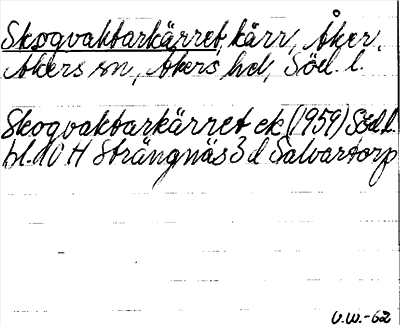 Skogvaktarkärret, kärr, Åker,
Åkers sn, Åkers hd, Söd. l.
Skogvaktarkärret ek (1959) Söd. l.
bl. 10 H Strängnäs 3 d Salvartorp
V.W.-62